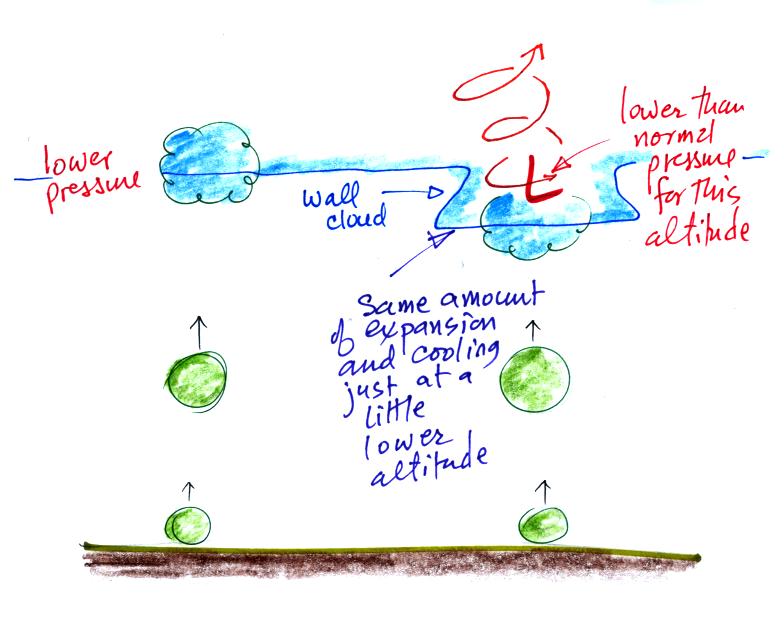 lower
pressure
wall
cloud
L
lower than
normal
pressure
for this
altitude
Same amount
of expansion
and cooling
just at a
little
lower
altitude